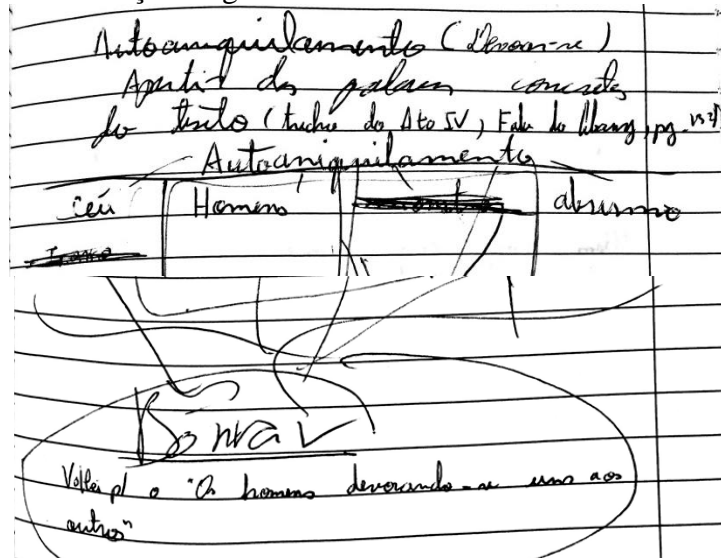 Autoaniquilamento (devoram-se)
Apartir das palavras concretas
do texto (trecho do Ato IV, Fala do Albany, pg.
Autoaniquilamento
céu Homens abismo
Volta p/ o "Os homens devorando-se uns aos
outros"